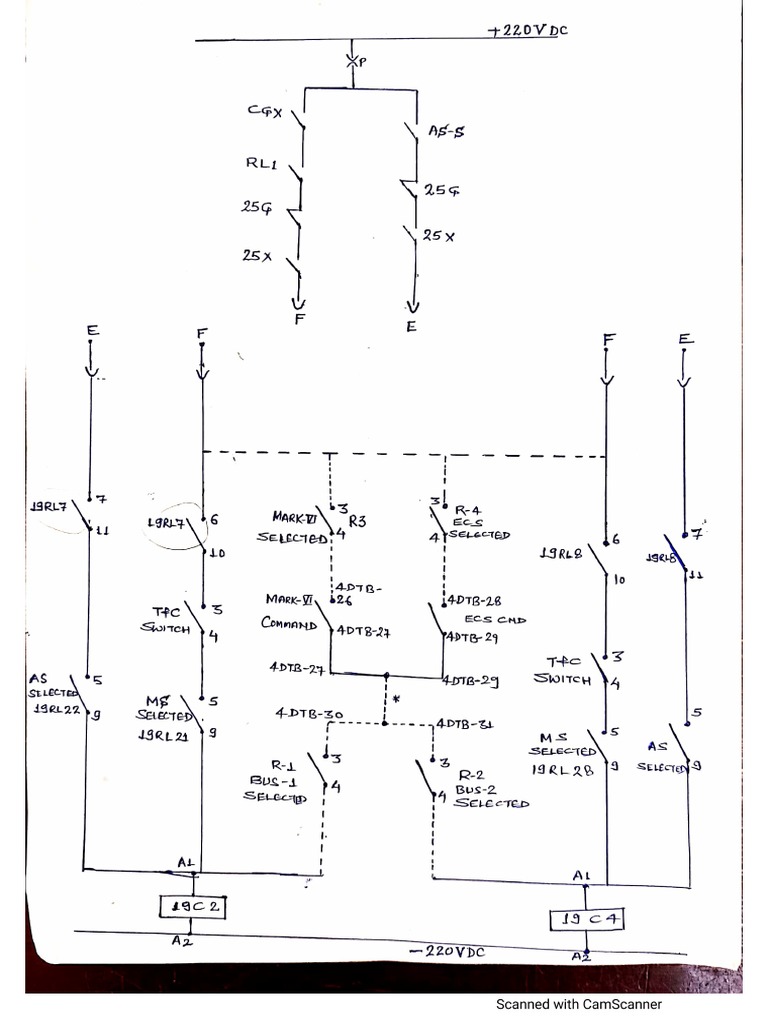 +220VDC
P
CGX
AS-S
RL1
25G
25G
25X
25X
F
E
E
F
F
E
7
19RL7
11
19RL7
6
10
3
MARK-VI
SELECTED
R3
4
3
R-4
ECS
SELECTED
4
6
19RL8
10
7
19RL8
11
TFC
SWITCH
3
4
4DTB-
26
MARK-VI
COMMAND
4DTB-27
4DTB-28
ECS CMD
4DTB-29
4DTB-27
4DTB-29
TFC
SWITCH
3
4
AS
SELECTED
19RL22
5
9
MS
SELECTED
19RL21
5
9
*
4DTB-30
4DTB-31
R-1
BUS-1
SELECTED
3
4
3
4
R-2
BUS-2
SELECTED
MS
SELECTED
19RL28
5
9
AS
SELECTED
5
9
A1
19C2
A2
A1
19C4
A2
-220VDC
Scanned with CamScanner